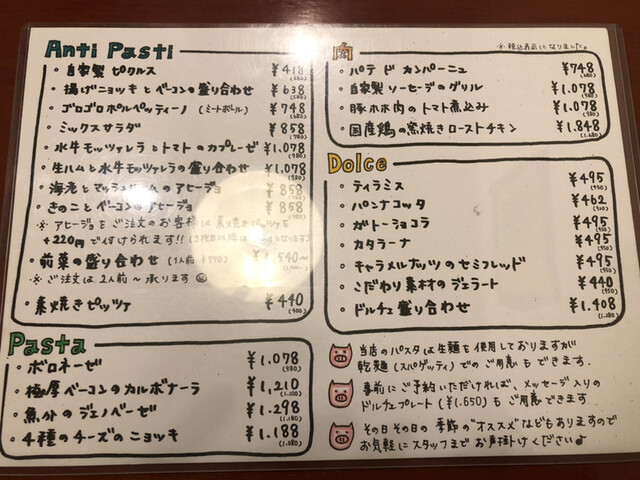 Anti Pasti
・自家製 ピクルス ¥418 (380)
・揚げニョッキとベーコンの盛り合わせ ¥638 (580)
・ゴロゴロポルペッティーノ (ミートボール) ¥748 (680)
・ミックスサラダ ¥858 (780)
・水牛モッツァレラとトマトのカプレーゼ ¥1,078 (980)
・生ハムと水牛モッツァレラの盛り合わせ ¥1,078 (980)
・海老とマッシュルームのアヒージョ ¥858
・きのことベーコンのアヒージョ ¥858
※アヒージョをご注文のお客様は 素焼きピッツァを
+220円で付けられます!!
・前菜の盛り合わせ (1人前 ¥770) ¥1,540〜
※ご注文は2人前〜承ります
・素焼きピッツァ ¥440 (400)
Pasta
・ボロネーゼ ¥1,078 (980)
・極厚ベーコンのカルボナーラ ¥1,210 (1,100)
・魚介のジェノベーゼ ¥1,298 (1,180)
・4種のチーズのニョッキ ¥1,188 (1,080)
肉
※税込表示になりました。
・パテ ド カンパーニュ ¥748 (680)
・自家製ソーセージのグリル ¥1,078 (980)
・豚ホホ肉のトマト煮込み ¥1,078 (980)
・国産鶏の窯焼きローストチキン ¥1,848 (1,680)
Dolce
・ティラミス ¥495 (450)
・パンナコッタ ¥462 (420)
・ガトーショコラ ¥495 (450)
・カタラーナ ¥495 (450)
・キャラメルナッツのセミフレッド ¥495 (450)
・こだわり素材のジェラート ¥440 (400)
・ドルチェ盛り合わせ ¥1,408 (1,280)
当店のパスタは生麺を使用しておりますが
乾麺(スパゲッティ)でのご用意もできます.
事前にご予約いただければ、メッセージ入りの
ドルチェプレート(¥1,650)もご用意できます
その日その日の季節の"オススメ"などもありますので
お気軽にスタッフまでお声掛けください♪